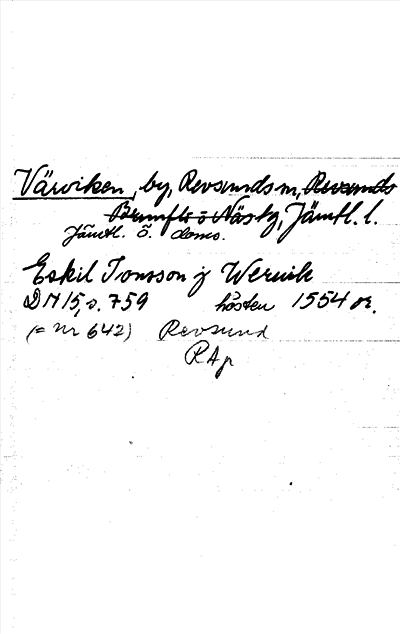 Värviken, by, Revsunds sn, Revsunds
Brunflo o Näs tg, Jämtl. l.
Jämtl. ö. doms.
Eskil Jonsson j Weruik
DN 15, s. 759 hösten 1554 or.
(= nr 642) Revsund
RAp